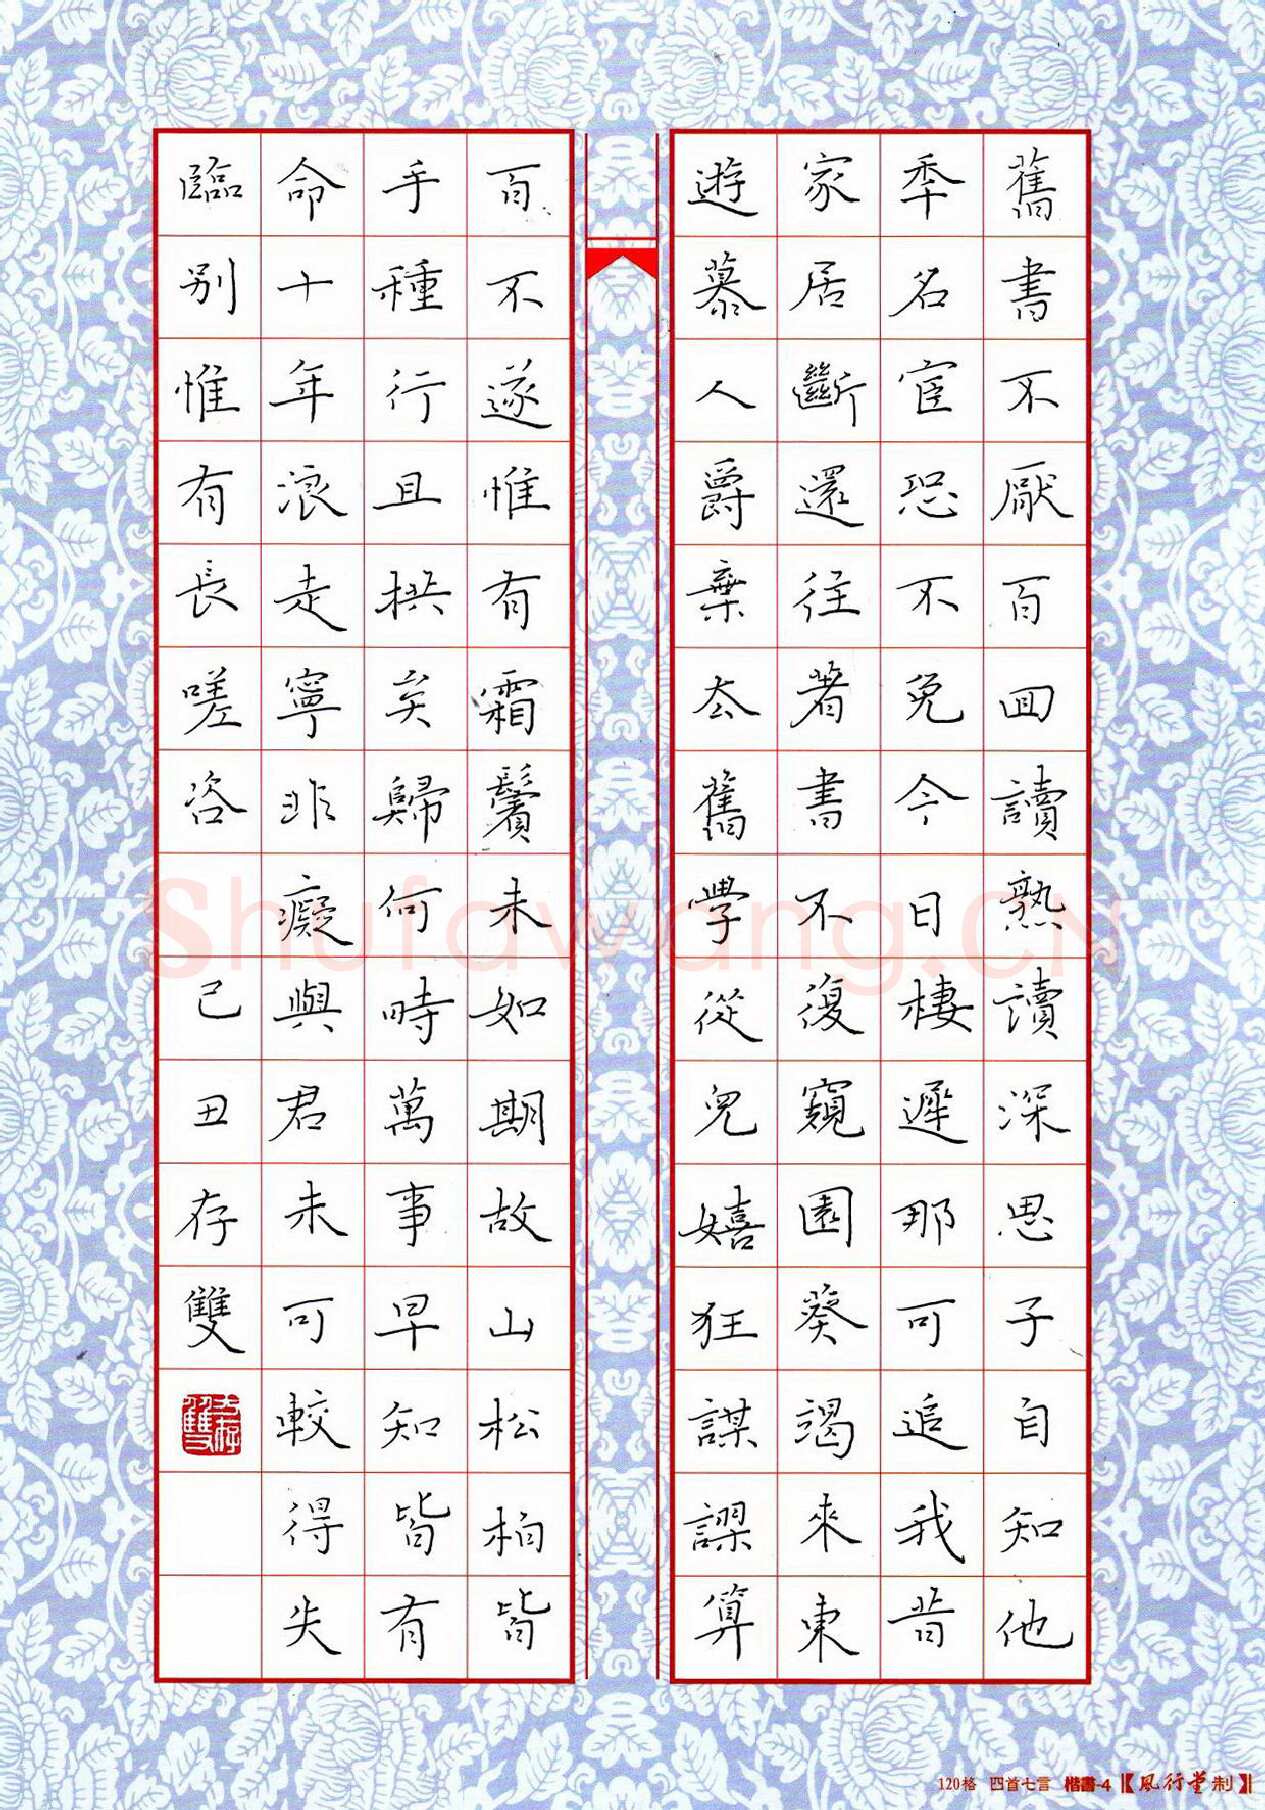 舊書不厭百囬讀熟讀深思子自知他
秊名宦恐不免今日棲遲那可追我昔
家居斷還往著書不復窺園葵朅來東
遊慕人爵棄厺舊學從兒嬉狂謀謬算
百不遂惟有霜鬢未如期故山松柏皆
手種行且拱矣歸何時萬事早知皆有
命十年浪走寧非癡與君未可較得失
臨別惟有長嗟咨 己丑存雙
Shufawang.CN
120格 四首七言 楷書-4【風行堂制】